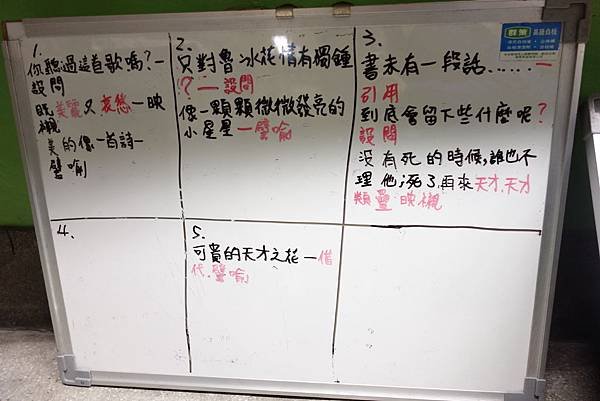 1.
你聽過這首歌嗎?一
設問
既美麗又哀愁一映
襯
美的像一首詩一
譬喻
2.
只對魯冰花情有獨鍾
?一設問
像一顆顆微微發亮的
小星星一譬喻
3.
書末有一段話......一
引用
到底會留下些什麼呢?
設問
沒有死的時候,誰也不
理他;死了再來天才.天才
類疊 映襯
4.
5.
可貴的天才之花一借
代.譬喻
群策
高級白板